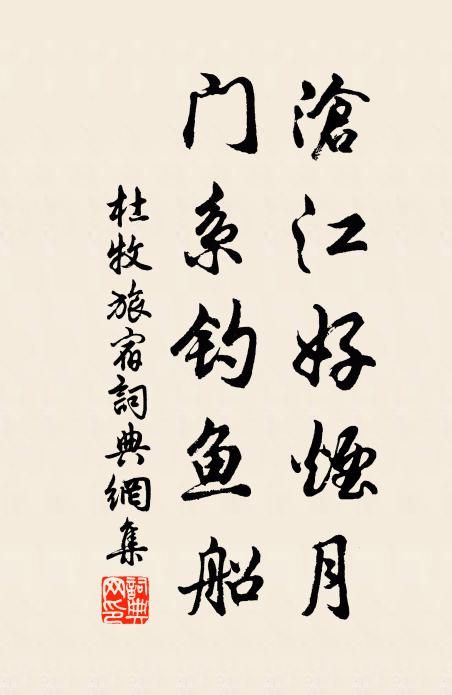 滄江好煙月
门系钓鱼船
杜牧旅宿詞典網集
詞典网印